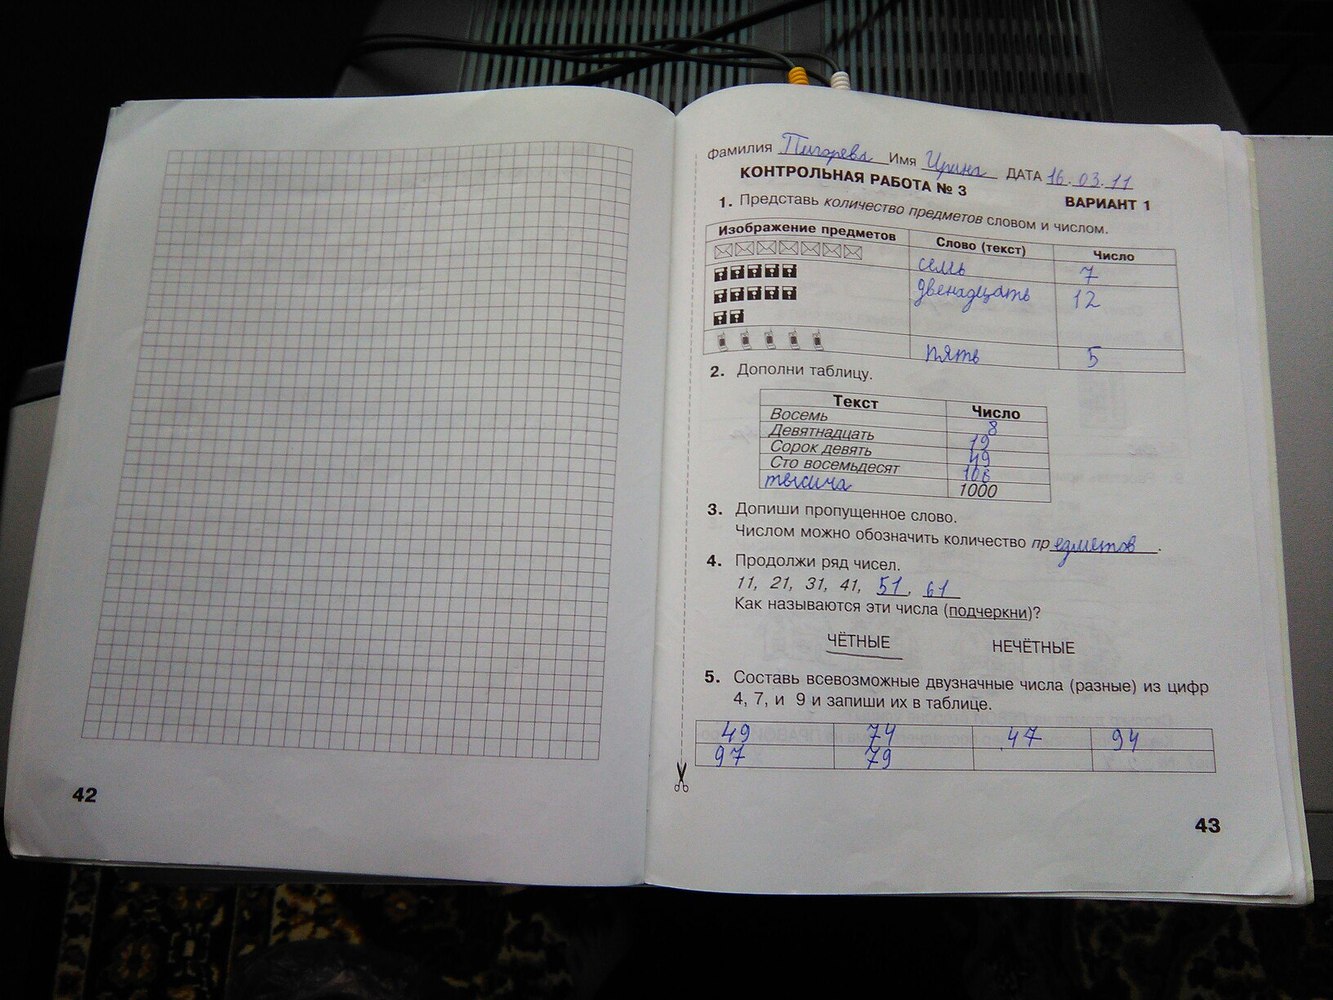 Фамилия Пигорева Имя Ирина ДАТА 16.03.11
КОНТРОЛЬНАЯ РАБОТА № 3
ВАРИАНТ 1
1. Представь количество предметов словом и числом.
Изображение предметов Слово (текст) Число
семь 7
двенадцать 12
пять 5
2. Дополни таблицу.
Текст Число
Восемь 8
Девятнадцать 19
Сорок девять 49
Сто восемьдесят 108
тысяча 1000
3. Допиши пропущенное слово.
Числом можно обозначить количество предметов.
4. Продолжи ряд чисел.
11, 21, 31, 41, 51, 61
Как называются эти числа (подчеркни)?
ЧЁТНЫЕ НЕЧЁТНЫЕ
5. Составь всевозможные двузначные числа (разные) из цифр
4, 7, и 9 и запиши их в таблице.
49 74 47 94
97 79
42
43